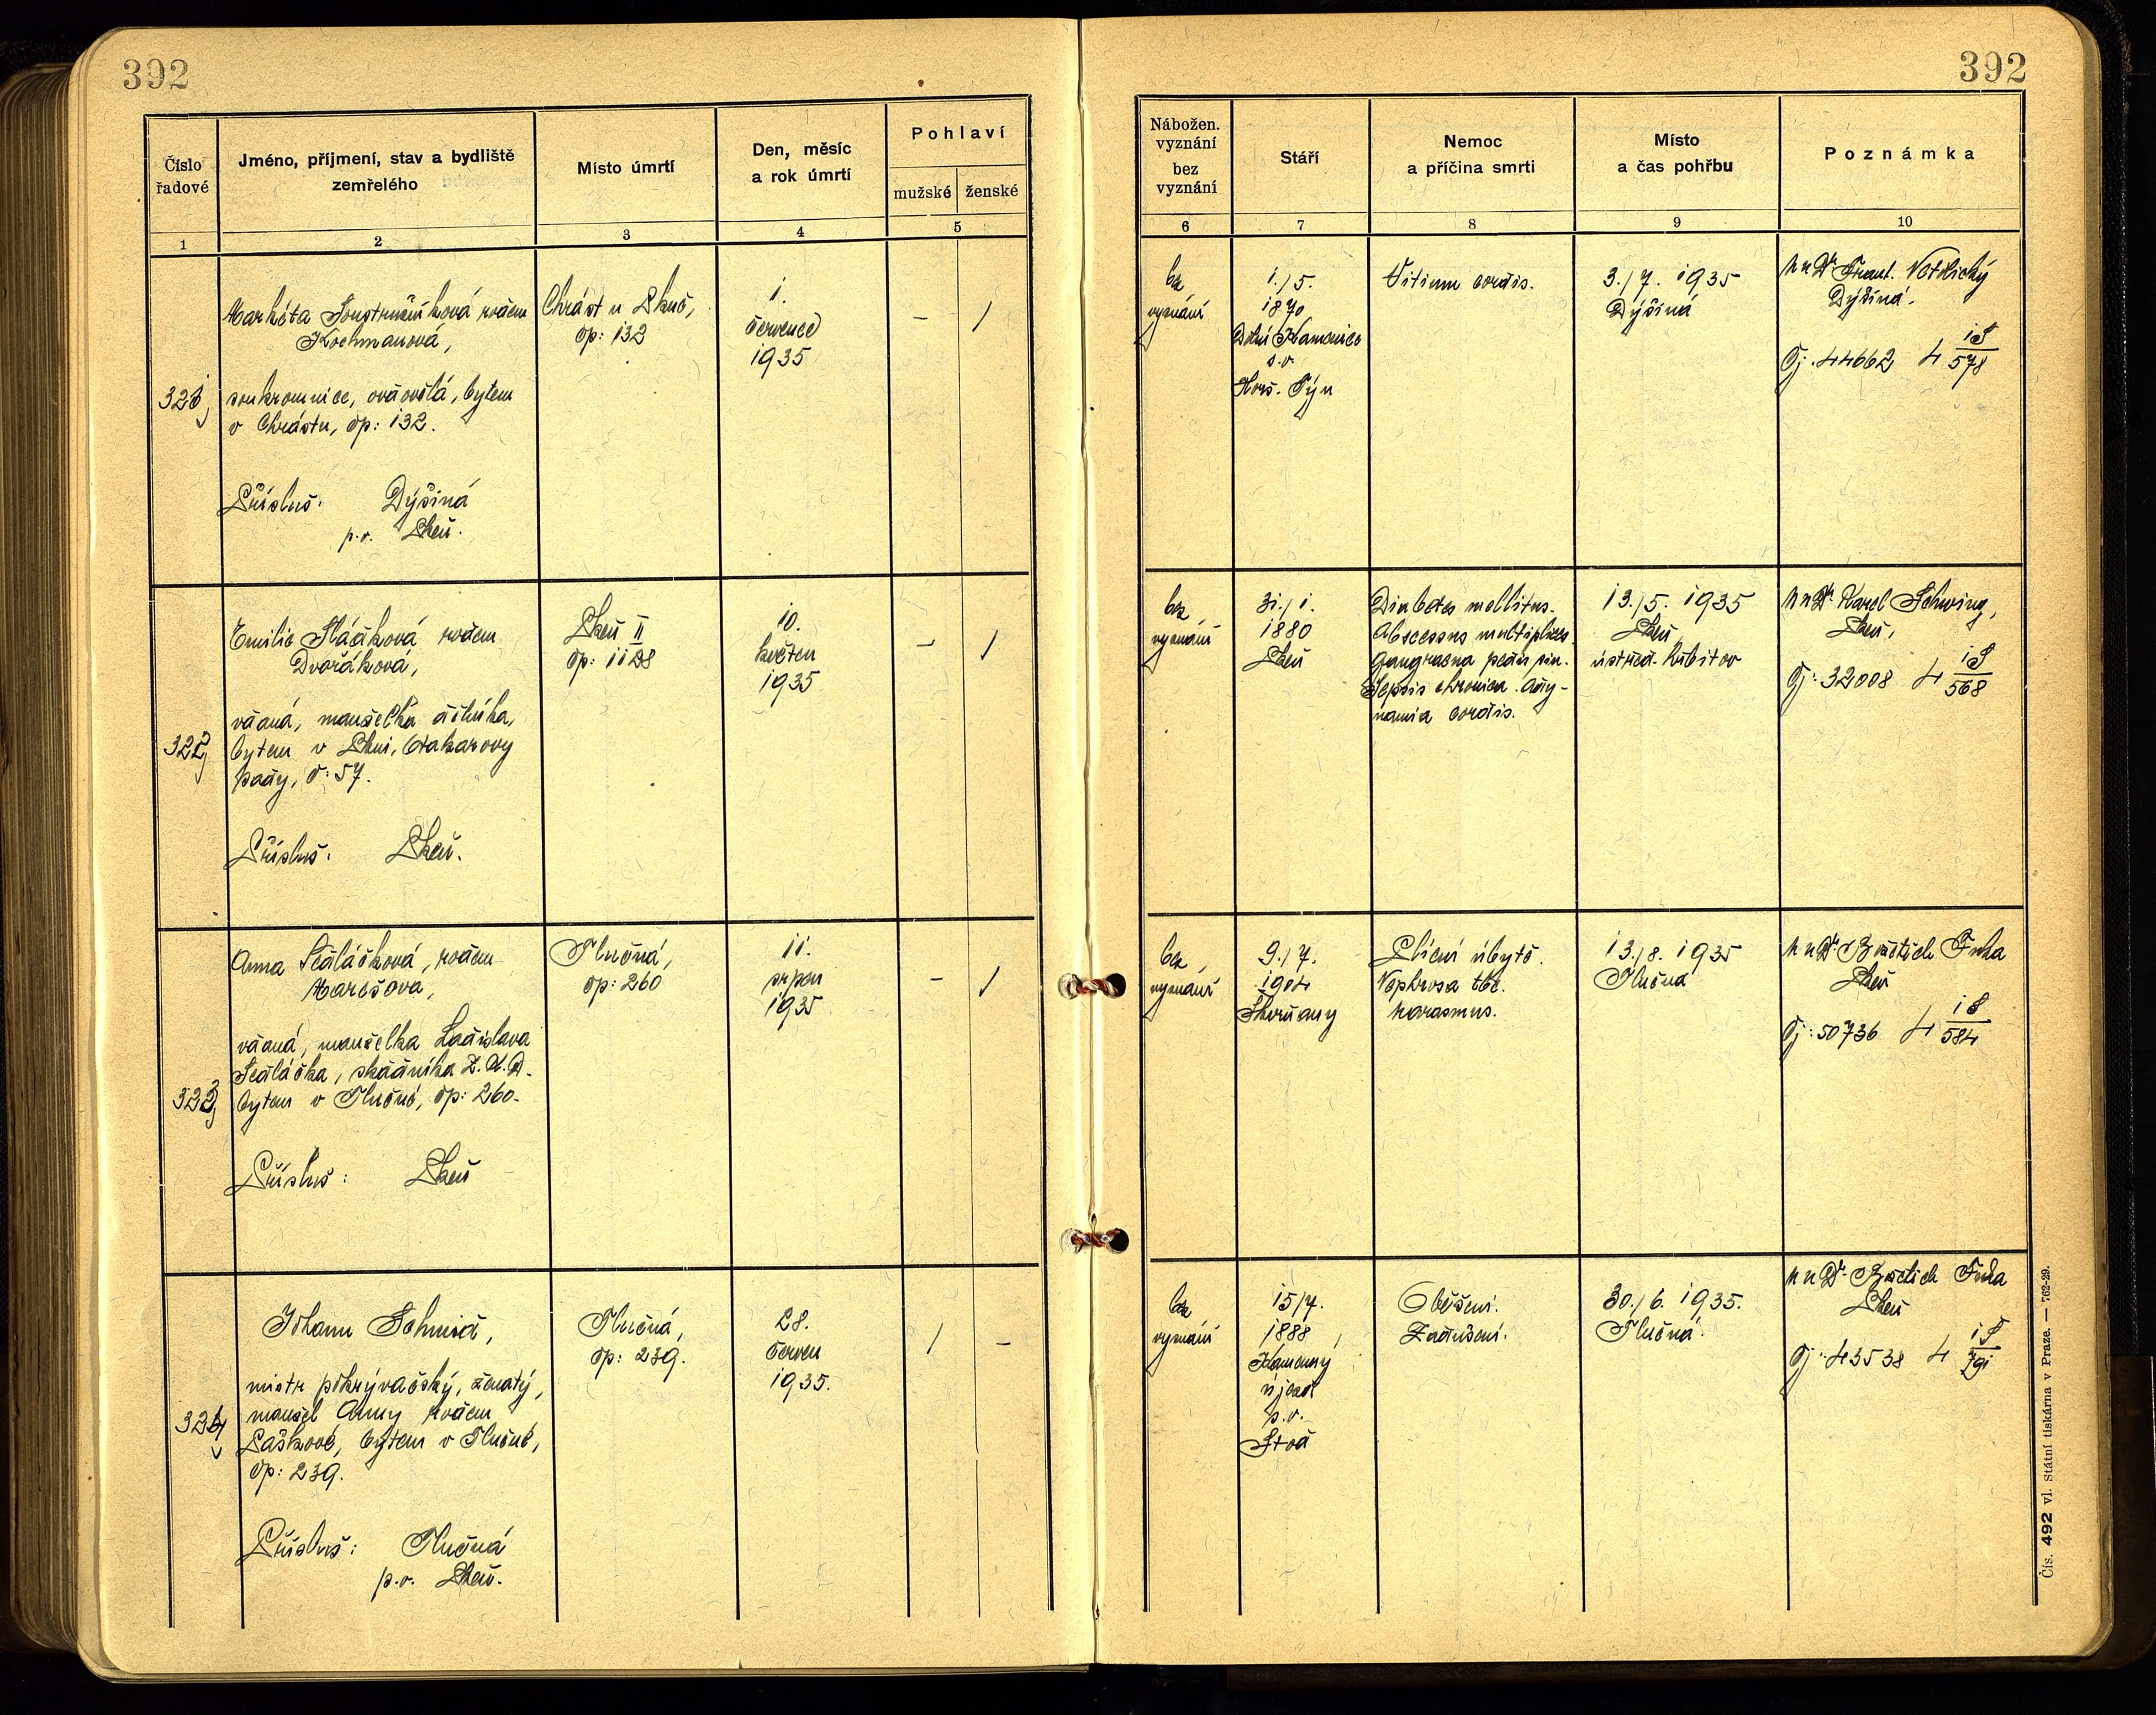 392
Číslo řadové
Jméno, příjmení, stav a bydliště zemřelého
Místo úmrtí
Den, měsíc a rok úmrtí
Pohlaví
mužské
ženské
1
2
3
4
5
321
Markéta
rodem
Kochmanová,
soukromnice, ovdovělá, bytem
v Chrástu, čp: 132.
Přísluš: Dýšiná
p.o. Plzeň.
Chrást u Plzně,
čp: 132
1.
července
1935
–
1
322
Emilie
rodem
Dvořáková,
vdaná, manželka dělníka,
bytem v Plzni, Otakarovy
sady, č: 57.
Přísluš: Plzeň.
Plzeň II
čp:
10.
květen
1935
–
1
323
Anna Sedláčková, rodem
Marešová,
vdaná, manželka Ladislava
Sedláčka, skladníka Z.K.D.
bytem v Tlučné, čp: 260.
Přísluš: Plzeň
Tlučná,
čp: 260
11.
srpen
1935
–
1
324
Johann Schmid,
mistr pokrývačský, ženatý,
manžel Anny rodem
Paškové, bytem v Tlučné,
čp: 239.
Přísluš: Tlučná
p.o. Plzeň.
Tlučná,
čp: 239.
28.
červen
1935.
1
–
392
Nábožen. vyznání
bez vyznání
Stáří
Nemoc a příčina smrti
Místo a čas pohřbu
Poznámka
6
7
8
9
10
bez
vyznání
1./5.
1870
Dolní Kamenice
s.o.
Horš. Týn
Vitium cordis.
3./7. 1935
Dýšiná
MUDr Frant.
Dýšiná.
Čj. 44662
578
bez
vyznání
31./1.
1880
Plzeň
Diabetes mellitus.
Abscessus multiplices.
Gangraena pedis sin.
Sepsis chronica. Ady-
namia cordis.
13./5. 1935
Plzeň
ústřed. hřbitov
MUDr. Karel Schwing,
Plzeň,
Čj: 32008
568
bez
vyznání
9./7.
1904
Skvrňany
Plicní úbytě.
Nephrosa tbc.
marasmus.
13./8. 1935
Tlučná
MUDr. Bedřich Fuka
Plzeň
Čj: 50736
584
bez
vyznání
15/7.
1888
Kamenný
újezd
p.o.
Stod
Oběšení.
Zadušení.
30./6. 1935.
Tlučná.
MUDr. Bedřich Fuka
Plzeň
Čj: 43538
Čís. 492 vl. Státní tiskárna v Praze. — 762-29.